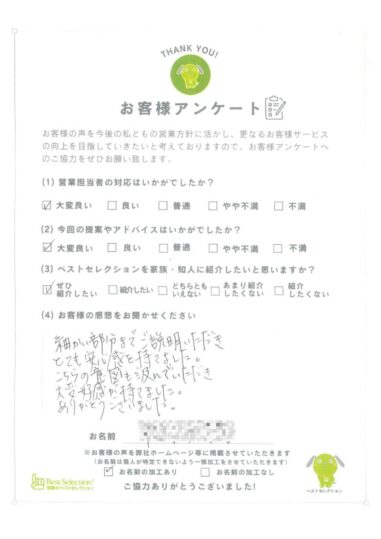 THANK YOU!
お客様アンケート
お客様の声を今後の私どもの営業方針に活かし、更なるお客様サービス
の向上を目指していきたいと考えておりますので、お客様アンケートへ
のご協力をぜひお願い致します。
(1) 営業担当者の対応はいかがでしたか?
大変良い 良い 普通 やや不満 不満
(2) 今回の提案やアドバイスはいかがでしたか?
大変良い 良い 普通 やや不満 不満
(3) ベストセレクションを家族・知人に紹介したいと思いますか?
ぜひ紹介したい 紹介したい どちらともいえない あまり紹介したくない 紹介したくない
(4) お客様の感想をお聞かせください
細かい部分までご説明いただき
とても安心感を持てました。
こちらの意図も汲んでいただき
大変好感が持てました。
ありがとうございました。
お名前
※お客様の声を弊社ホームページ等に掲載させていただきます
(お名前は個人が特定できないよう一部加工をさせていただきます)
お名前の加工あり お名前の加工なし
ご協力ありがとうございました!
Best Selection!
ベストセレクション